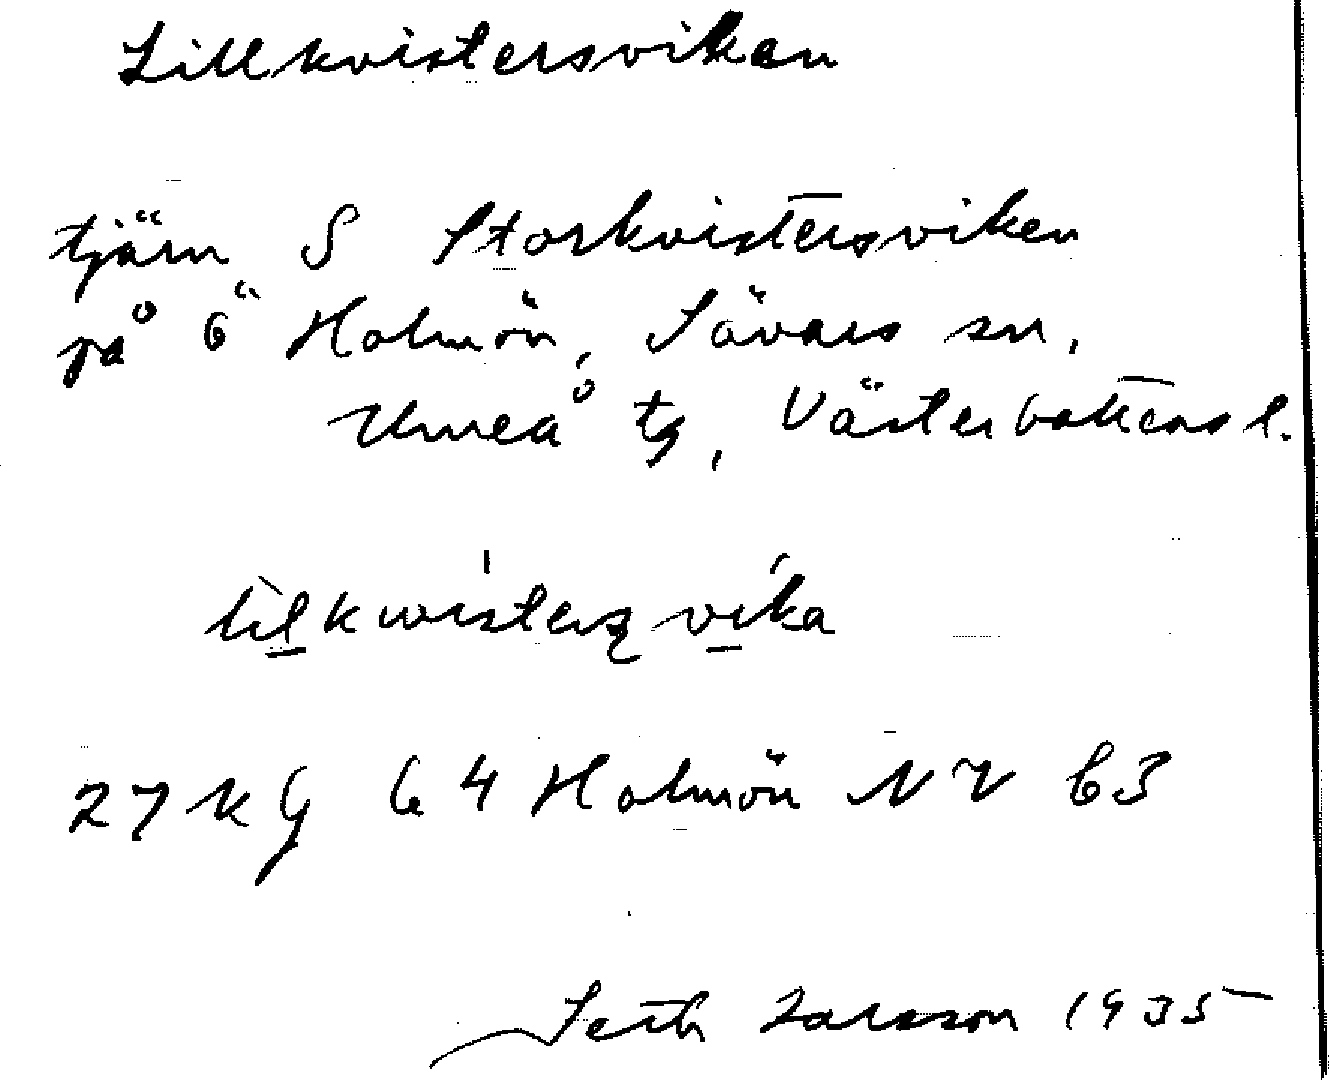 Lillkvistersviken
tjärn S Storkvistersviken
på ö Holmön, Sävars sn,
Umeå tg, Västerbottens l.
lilkwisterʂvika
27 K g 64 Holmön NV b3
Seth Larsson 1935